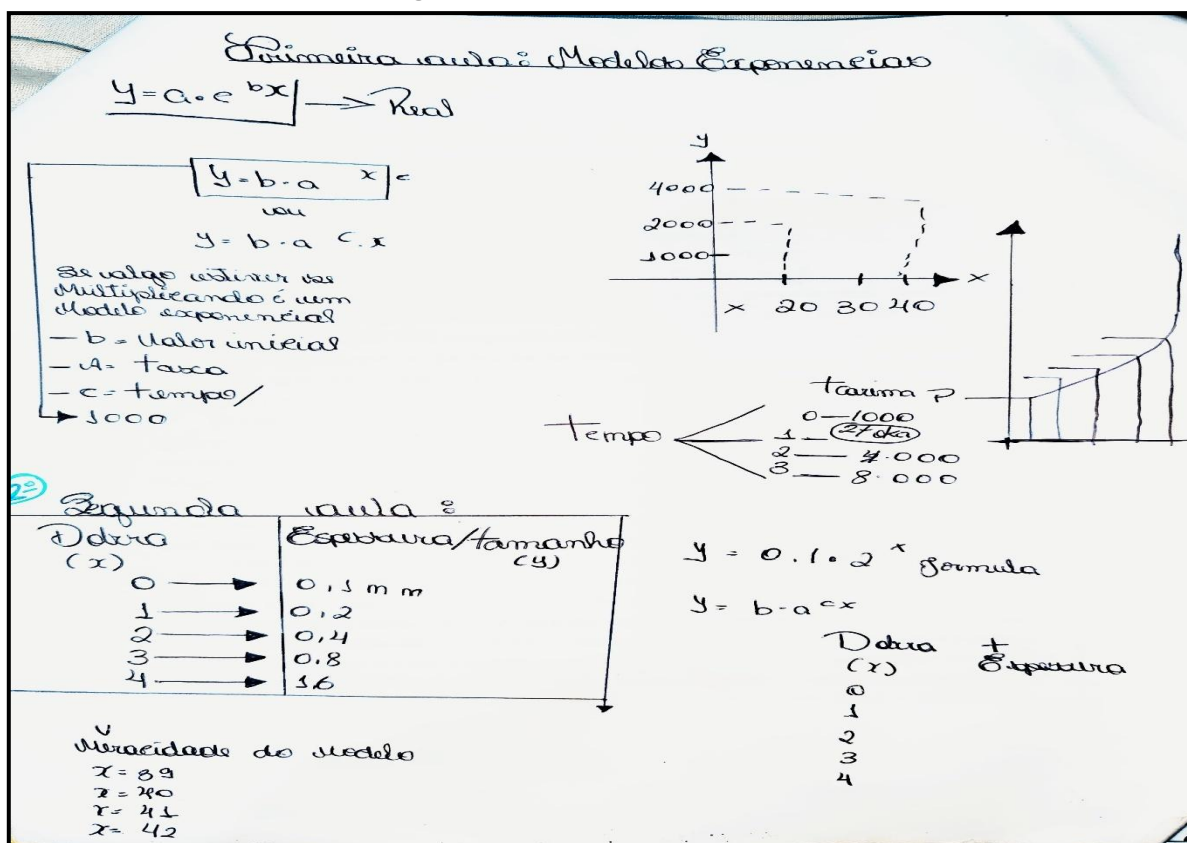 Primeira aula: Modelos Exponencias
y = a . e bx → Real
y = b . a x c
ou
y = b . a c . x
Se algo estiver se
Multiplicando é um
Modelo exponencial
— b = Valor inicial
— A = taxa
— c = tempo/
1000
y
4000
2000
1000
x
x 20 30 40
P
Tempo
0 — 1000
1 —
2 — 4.000
3 — 8.000
2º Segunda aula:
Dobra Espessura/tamanho
(x) (y)
0 → 0,1 mm
1 → 0,2
2 → 0,4
3 → 0,8
4 → 1,6
y = 0.1 . 2 x formula
y = b . a cx
Dobra + Espessura
(x)
0
1
2
3
4
Veracidade do Modelo
x = 39
x = 40
x = 41
x = 42